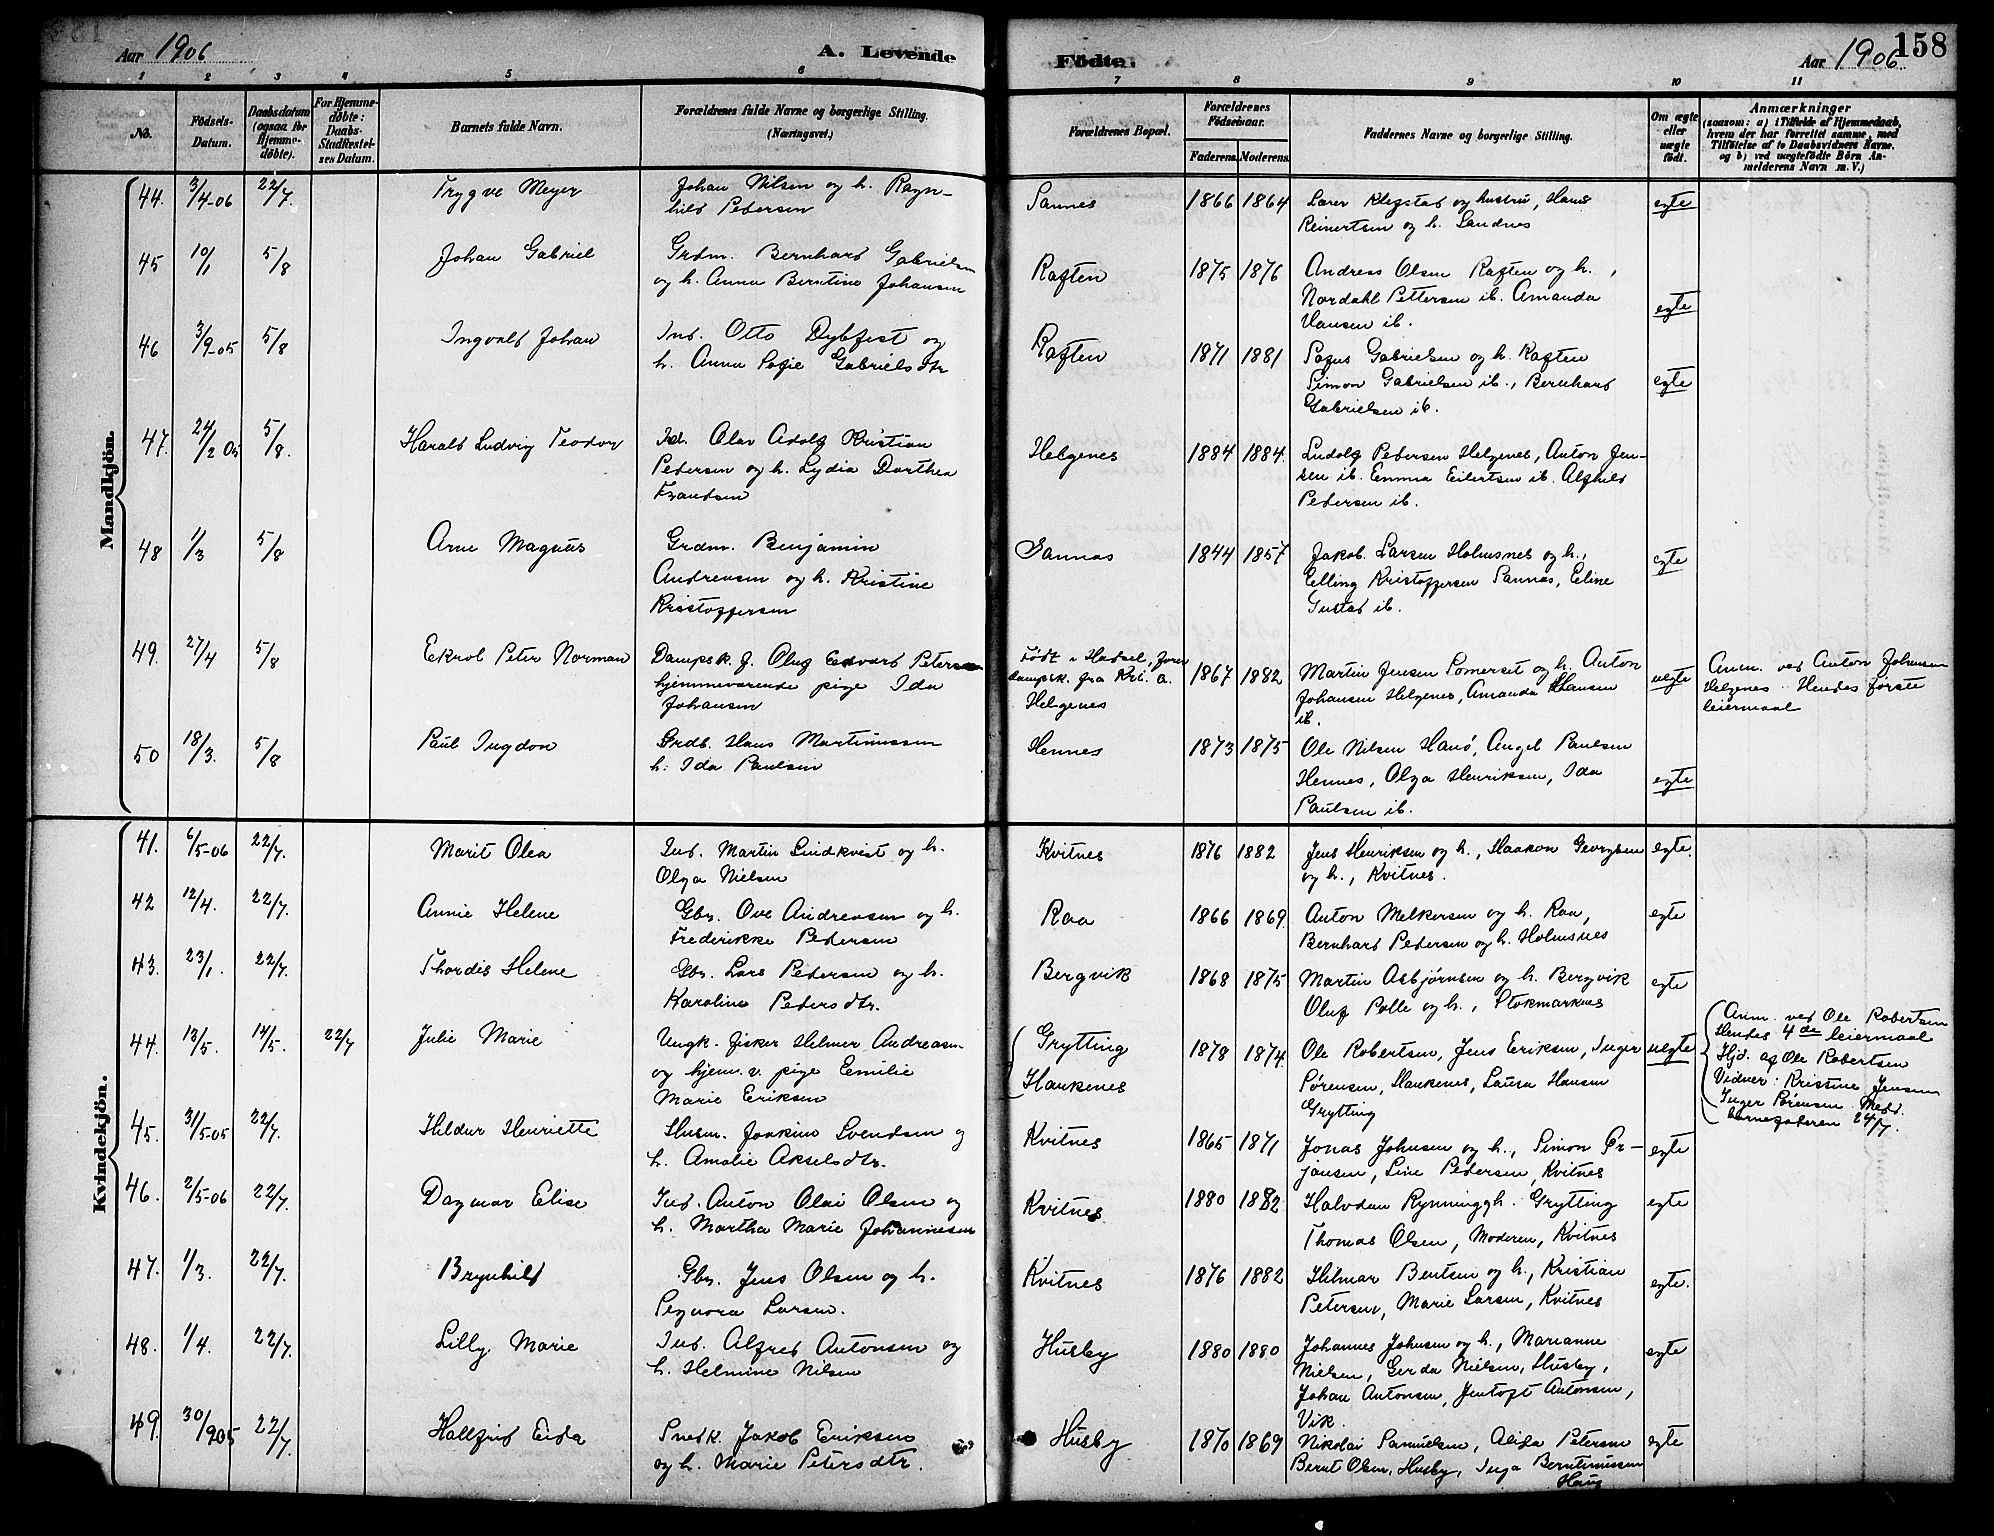 158
Aar 1906
A. Levende
Födte.
Aar 1906.
1 2 3 4 5 6 7 8 9 10 11
No.
Födsels-
Datum.
Daabsdatum
(ogsaa for
Hjemme-
døbte).
For Hjemme-
døbte:
Daabs-
Stadfæstel-
ses Datum.
Barnets fulde Navn.
Forældrenes fulde Navne og borgerlige Stilling.
(Næringsvei.)
Forældrenes Bopæl.
Forældrenes
Födselsaar.
Faderens. Moderens.
Faddernes Navne og borgerlige Stilling.
Om ægte
eller
uægte
født.
Anmærkninger
(saasom: a) i Tilfælde af Hjemmedaab,
hvem der har forrettet samme, med
Tilføielse af to Daabsvidners Navne.
og b) ved uægtefödte Børn An-
melderens Navn m. V.)
Mandkjön.
44. 3/4-06 22/7. Trygve Meyer Johan Nilsen og h. Ragn-
hild Pedersen
Sannes 1866 1864 Klegstad og hustru, Hans
Reinertsen og h. Sandnes
egte
45 10/1 5/8 Johan Gabriel Grdm. Bernhard Gabrielsen
og h. Anna Berntine Johansen
Raften 1875 1876 Andreas Olsen Raften og h.,
Nordahl Pettersen ib. Amanda
Hansen ib.
egte
46 3/9-05 5/8 Ingvald Johan Ind. Otto Dybfest og
h. Anna Sofie Gabrielsdtr
Raften 1871 1881 Sofus Gabrielsen og h. Raften
Simon Gabrielsen ib., Bernhard
Gabrielsen ib.
egte
47. 24/2 05 5/8. Harald Ludvig Teodor Ind. Olav Adolf Kristian
Pedersen og h. Lydia Dorthea
Frandsen
Helgenes 1884 1884. Ludolf Pedersen Helgenes, Anton Jen-
sen ib. Emma Eilertsen ib. Alfhild
Pedersen ib.
48 1/3 5/8 Arne Magnus Grdm. Benjamin
Andreasen og h. Kristine
Kristoffersen
Sannes 1844 1857 Jakob Larsen Holmsnes og h.,
Elling Kristoffersen Sannes, Eline
Gustad ib.
egte
49. 27/4 5/8 Ekrol Peter Norman Dampsk. f. Oluf Edvard Petersen
hjemmeværende pige Ida
Johansen
Født i Hadsel,
dampsk. fra Kri. a.
Helgenes
1867 1882 Martin Jensen Somerset og h. Anton
Johansen Helgenes, Amanda Hansen
ib.
uegte
Anm. ved Anton Johansen
Helgenes. Hendes første
leiermaal
50 18/3. 5/8 Paul Ingdon Grdb. Hans Martinussen
h. Ida Paulsen
Hennes 1873 1875 Ole Nilsen Hanø, Angel Paulsen
Hennes, Olga Henriksen, Ida
Paulsen ib.
egte
Kvindekjön.
41. 6/5-06 22/7. Marit Olea Ind. Martin Lindkvist og h.
Olga Nielsen
Kvitnes 1876 1882 Jens Henriksen og h., Haakon Georgsen
og h., Kvitnes.
egte.
42 12/4. 22/7. Annie Helene Gbr. Ove Andreasen og h.
Frederikke Pedersen
Raa 1866 1869. Anton Melkersen og h. Raa,
Bernhard Pedersen og h. Holmsnes
egte
43. 23/1. 22/7. Thordis Helene Gbr. Lars Pedersen og h.
Karoline Pedersdtr.
Bergvik 1868 1875 Martin Asbjørnsen og h. Bergvik
Oluf Polle og h., Stokmarknes
egte
44. 13/5. 14/5. 22/7 Julie Marie Ungk. fisker Helmer Andreasen
og hjem. v. pige Emilie
Marie Eriksen
Grytting
Haukenes
1878 1874. Ole Robertsen, Jens Eriksen, Inger
Sørensen, Haukenes, Laura Hansen
Grytting
uegte
Anm. ved Ole Robertsen
Hendes 4de leiermaal
Hjd. af Ole Robertsen
Vidner: Kristine Jensen
Inger Sørensen. Medd.
barnefaderen 24/7.
45. 31/5-05 22/7. Hildur Henriette Husm. Joakim Svendsen og
h. Amalie Akselsdtr.
Kvitnes 1865 1871 Jonas Johnsen og h., Simon Ør-
jansen, Line Pedersen, Kvitnes
egte
46. 2/5-06 22/7. Dagmar Elise Ind. Anton Olai Olsen og
h. Martha Marie Johannesen
Kvitnes 1880 1882 Halvdan Rynning og h. Grytting
Thomas Olsen, Moderen, Kvitnes
egte
47. 1/3. 22/7. Brynhild Gbr. Jens Olsen og h.
Pegnora Larsen.
Kvitnes 1876 1882 Hilmar Bentsen og h., Kristian
Petersen, Marie Larsen, Kvitnes
egte.
48. 1/4. 22/7. Lilly Marie Ind. Alfred Antonsen og
h. Helmine Nilsen
Husby 1880 1880 Johannes Johnsen og h., Marianne
Nielsen, Gerda Nielsen, Husby,
Johan Antonsen, Jentoft Antonsen,
Vik.
egte
49. 30/9 05 22/7 Hallfrid Eida Snedk. Jakob Eriksen
og h. Marie Petersdtr.
Husby 1870 1869 Nikolai Samuelsen, Alida Petersen
Bernt Olsen, Husby, Inga Berntinussen
Haug
egte